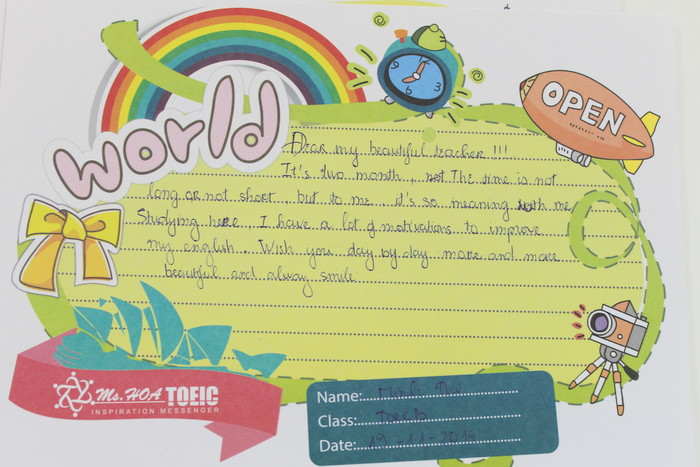 world
OPEN
Dear my beautiful teacher !!!
It's two month, The time is not
long or not short, but to me, it's so meaning with me
Studying here I have a lot of motivations to improve
my english. Wish you day by day more and more
beautiful and alway smile
6
3
Ms. HOA TOEIC
INSPIRATION MESSENGER
Name:
Class:
Date: 19 - 11 -